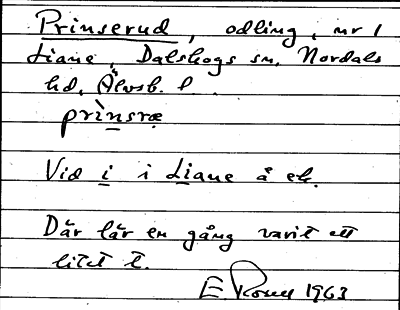 Prinserud, odling, nr 1
Liane, Dalskogs sn, Nordals
hd, Älvsb. l.
prìnsræ
Vid i i Liane å ek.
Där lär en gång varit ett
litet t.
E 1963